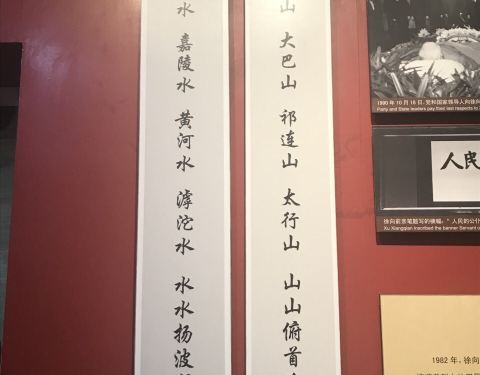 山 大巴山 祁连山 太行山 山山俯首
水 嘉陵水 黄河水 滹沱水 水水扬波
1990年10月18日，党和国家领导人向徐向
Party and State leaders pay their last respects to
人民
徐向前亲笔题写的横幅：“人民的公仆
Xu Xiangqian inscribed the banner Servant of
1982年，徐向